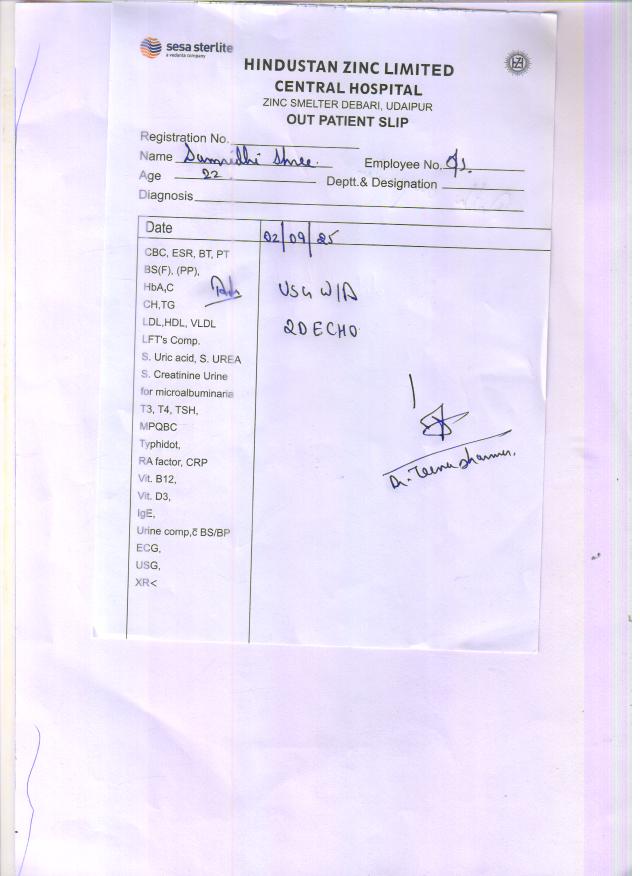 sesa sterlite
a vedanta company
HINDUSTAN ZINC LIMITED
CENTRAL HOSPITAL
ZINC SMELTER DEBARI, UDAIPUR
OUT PATIENT SLIP
Registration No.
Name Samridhi Shree. Employee No.
Age 22 Deptt.& Designation
Diagnosis
Date 02/09/25
CBC, ESR, BT, PT
BS(F), (PP),
HbA,C USG W/A
CH,TG
LDL,HDL, VLDL 2D ECHO
LFT's Comp.
S. Uric acid, S. UREA
S. Creatinine Urine
for microalbuminaria
T3, T4, TSH,
MPQBC
Typhidot,
RA factor, CRP
Dr. Teena Sharma.
Vit. B12,
Vit. D3,
IgE,
Urine comp,c̄ BS/BP
ECG,
USG,
XR<